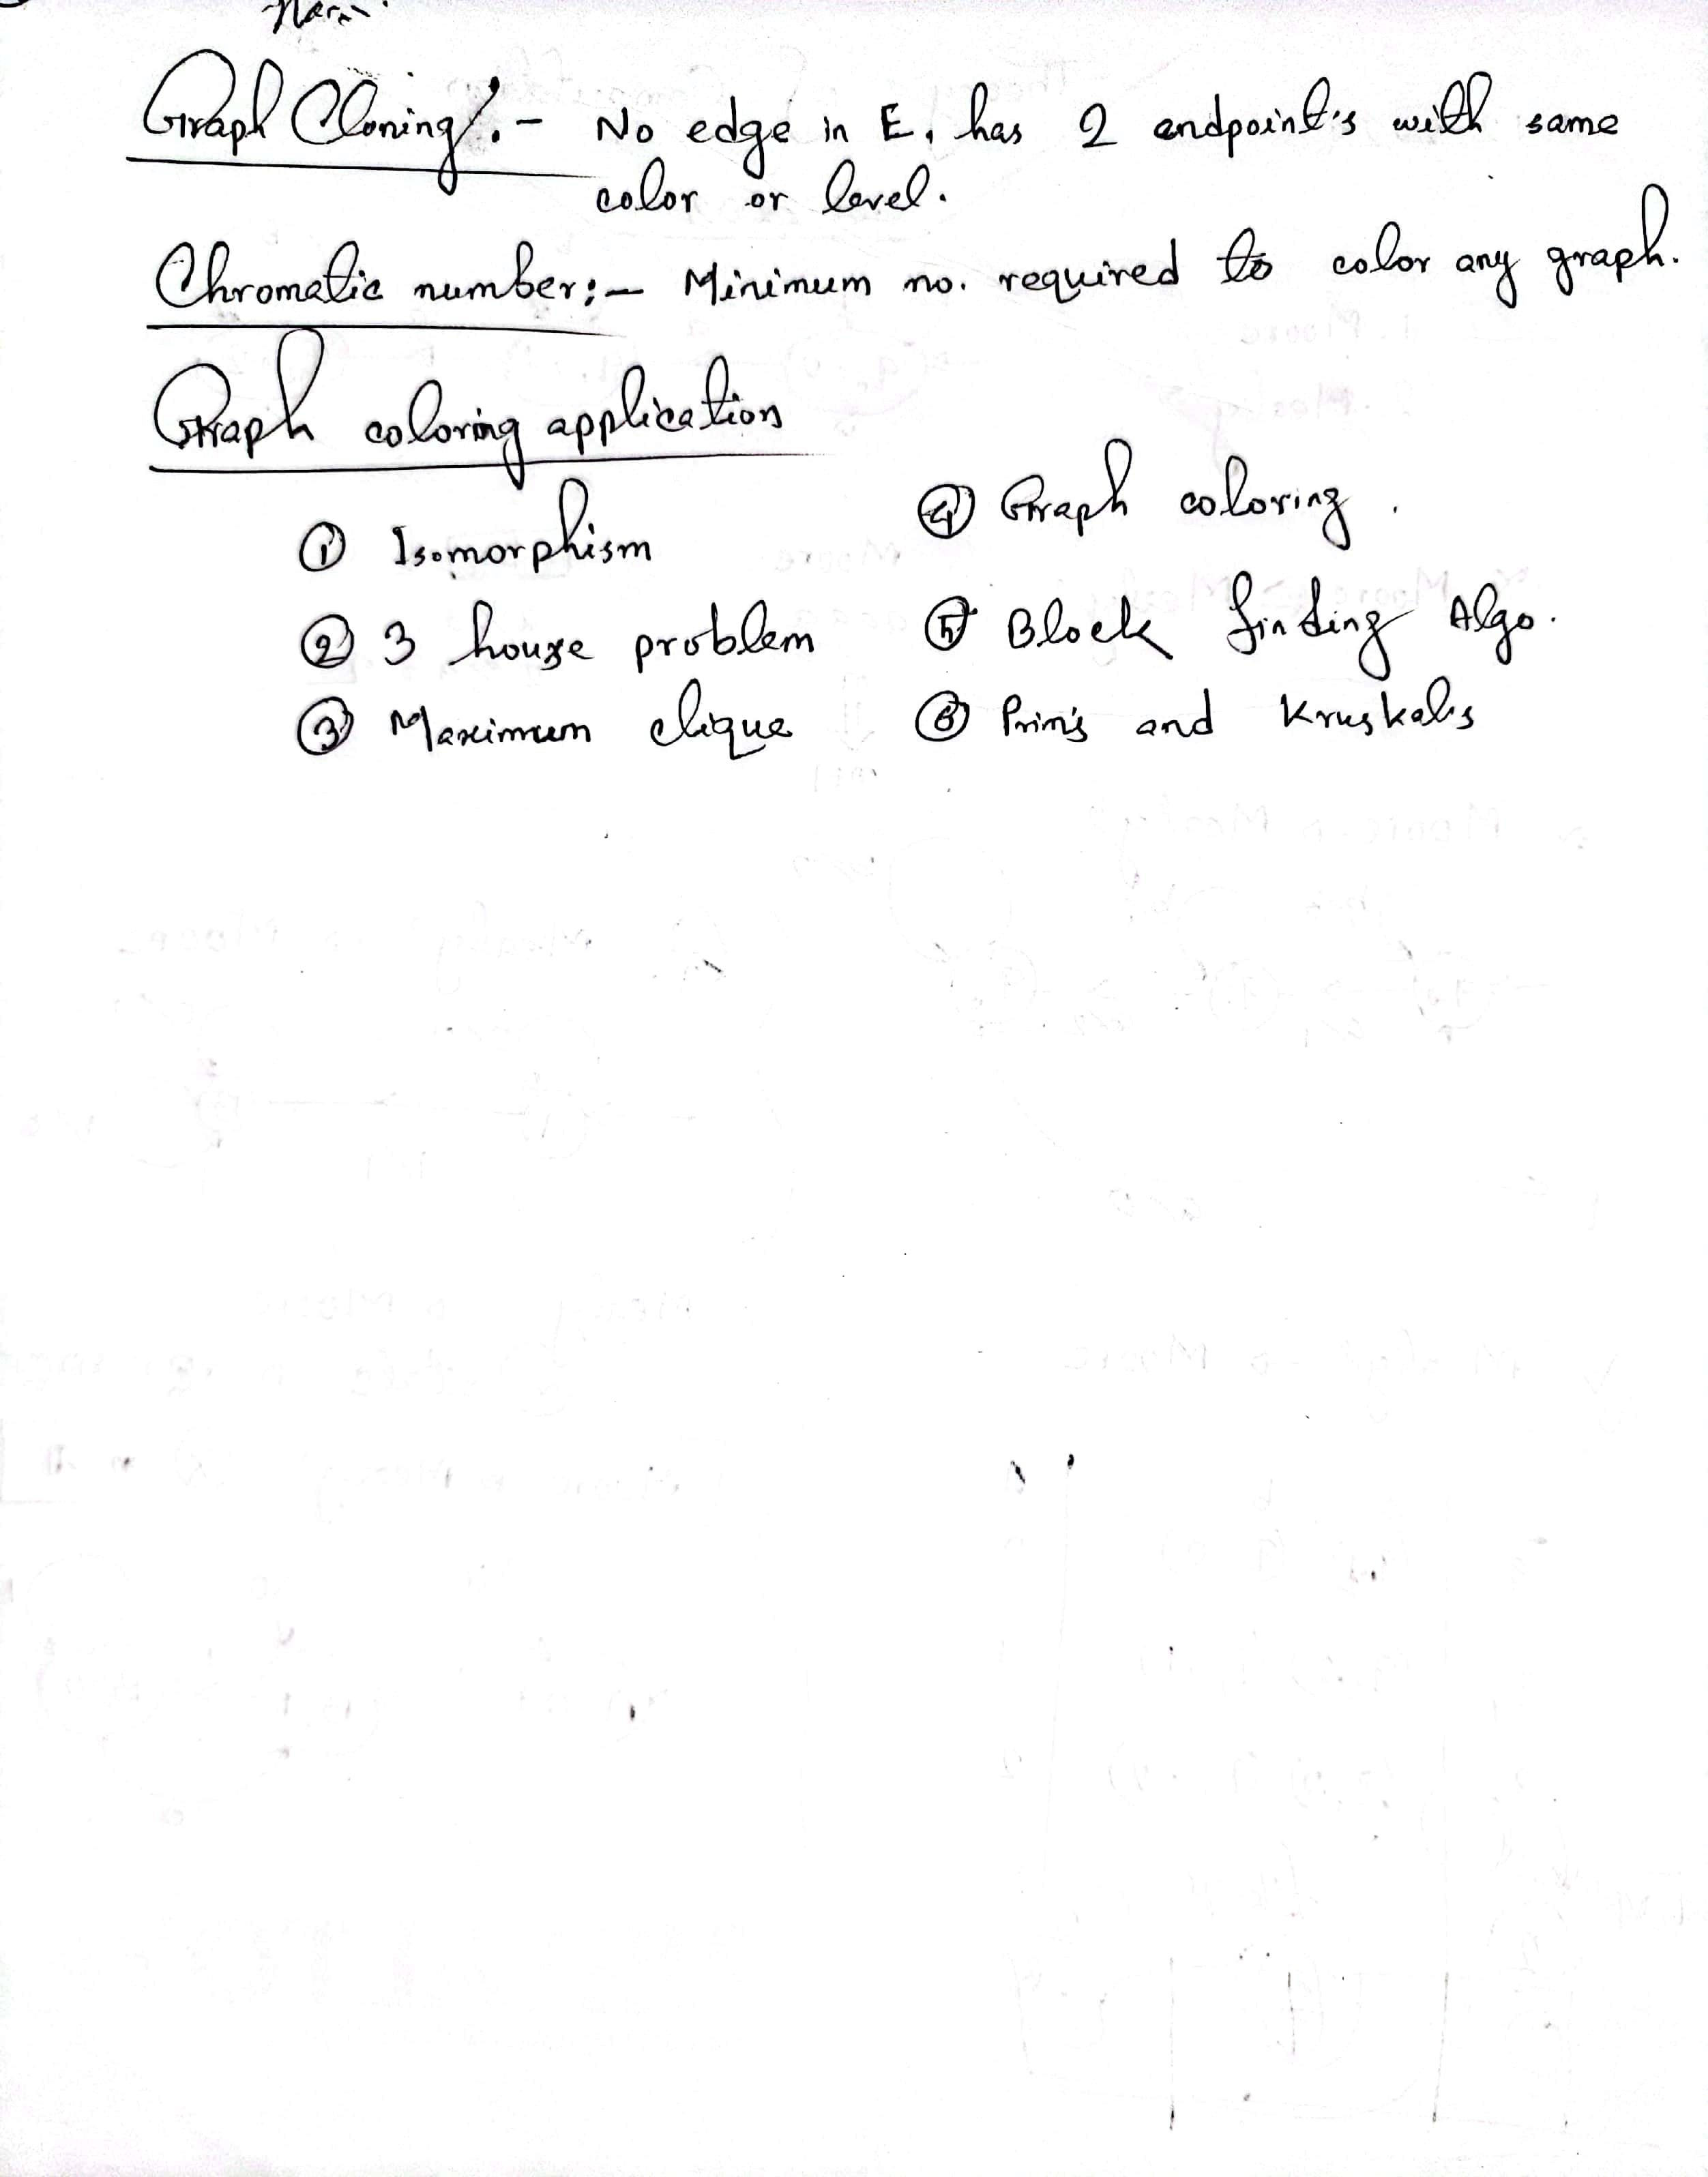 Graph Cloning :- No edge in E, has 2 endpoint's with same
color or level.
Chromatic number :- Minimum no. required to color any graph.
Graph coloring application
① Isomorphism
② 3 house problem
③ Maximum clique
④ Graph coloring .
⑤ Block finding Algo.
⑥ Prim's and Kruskal's